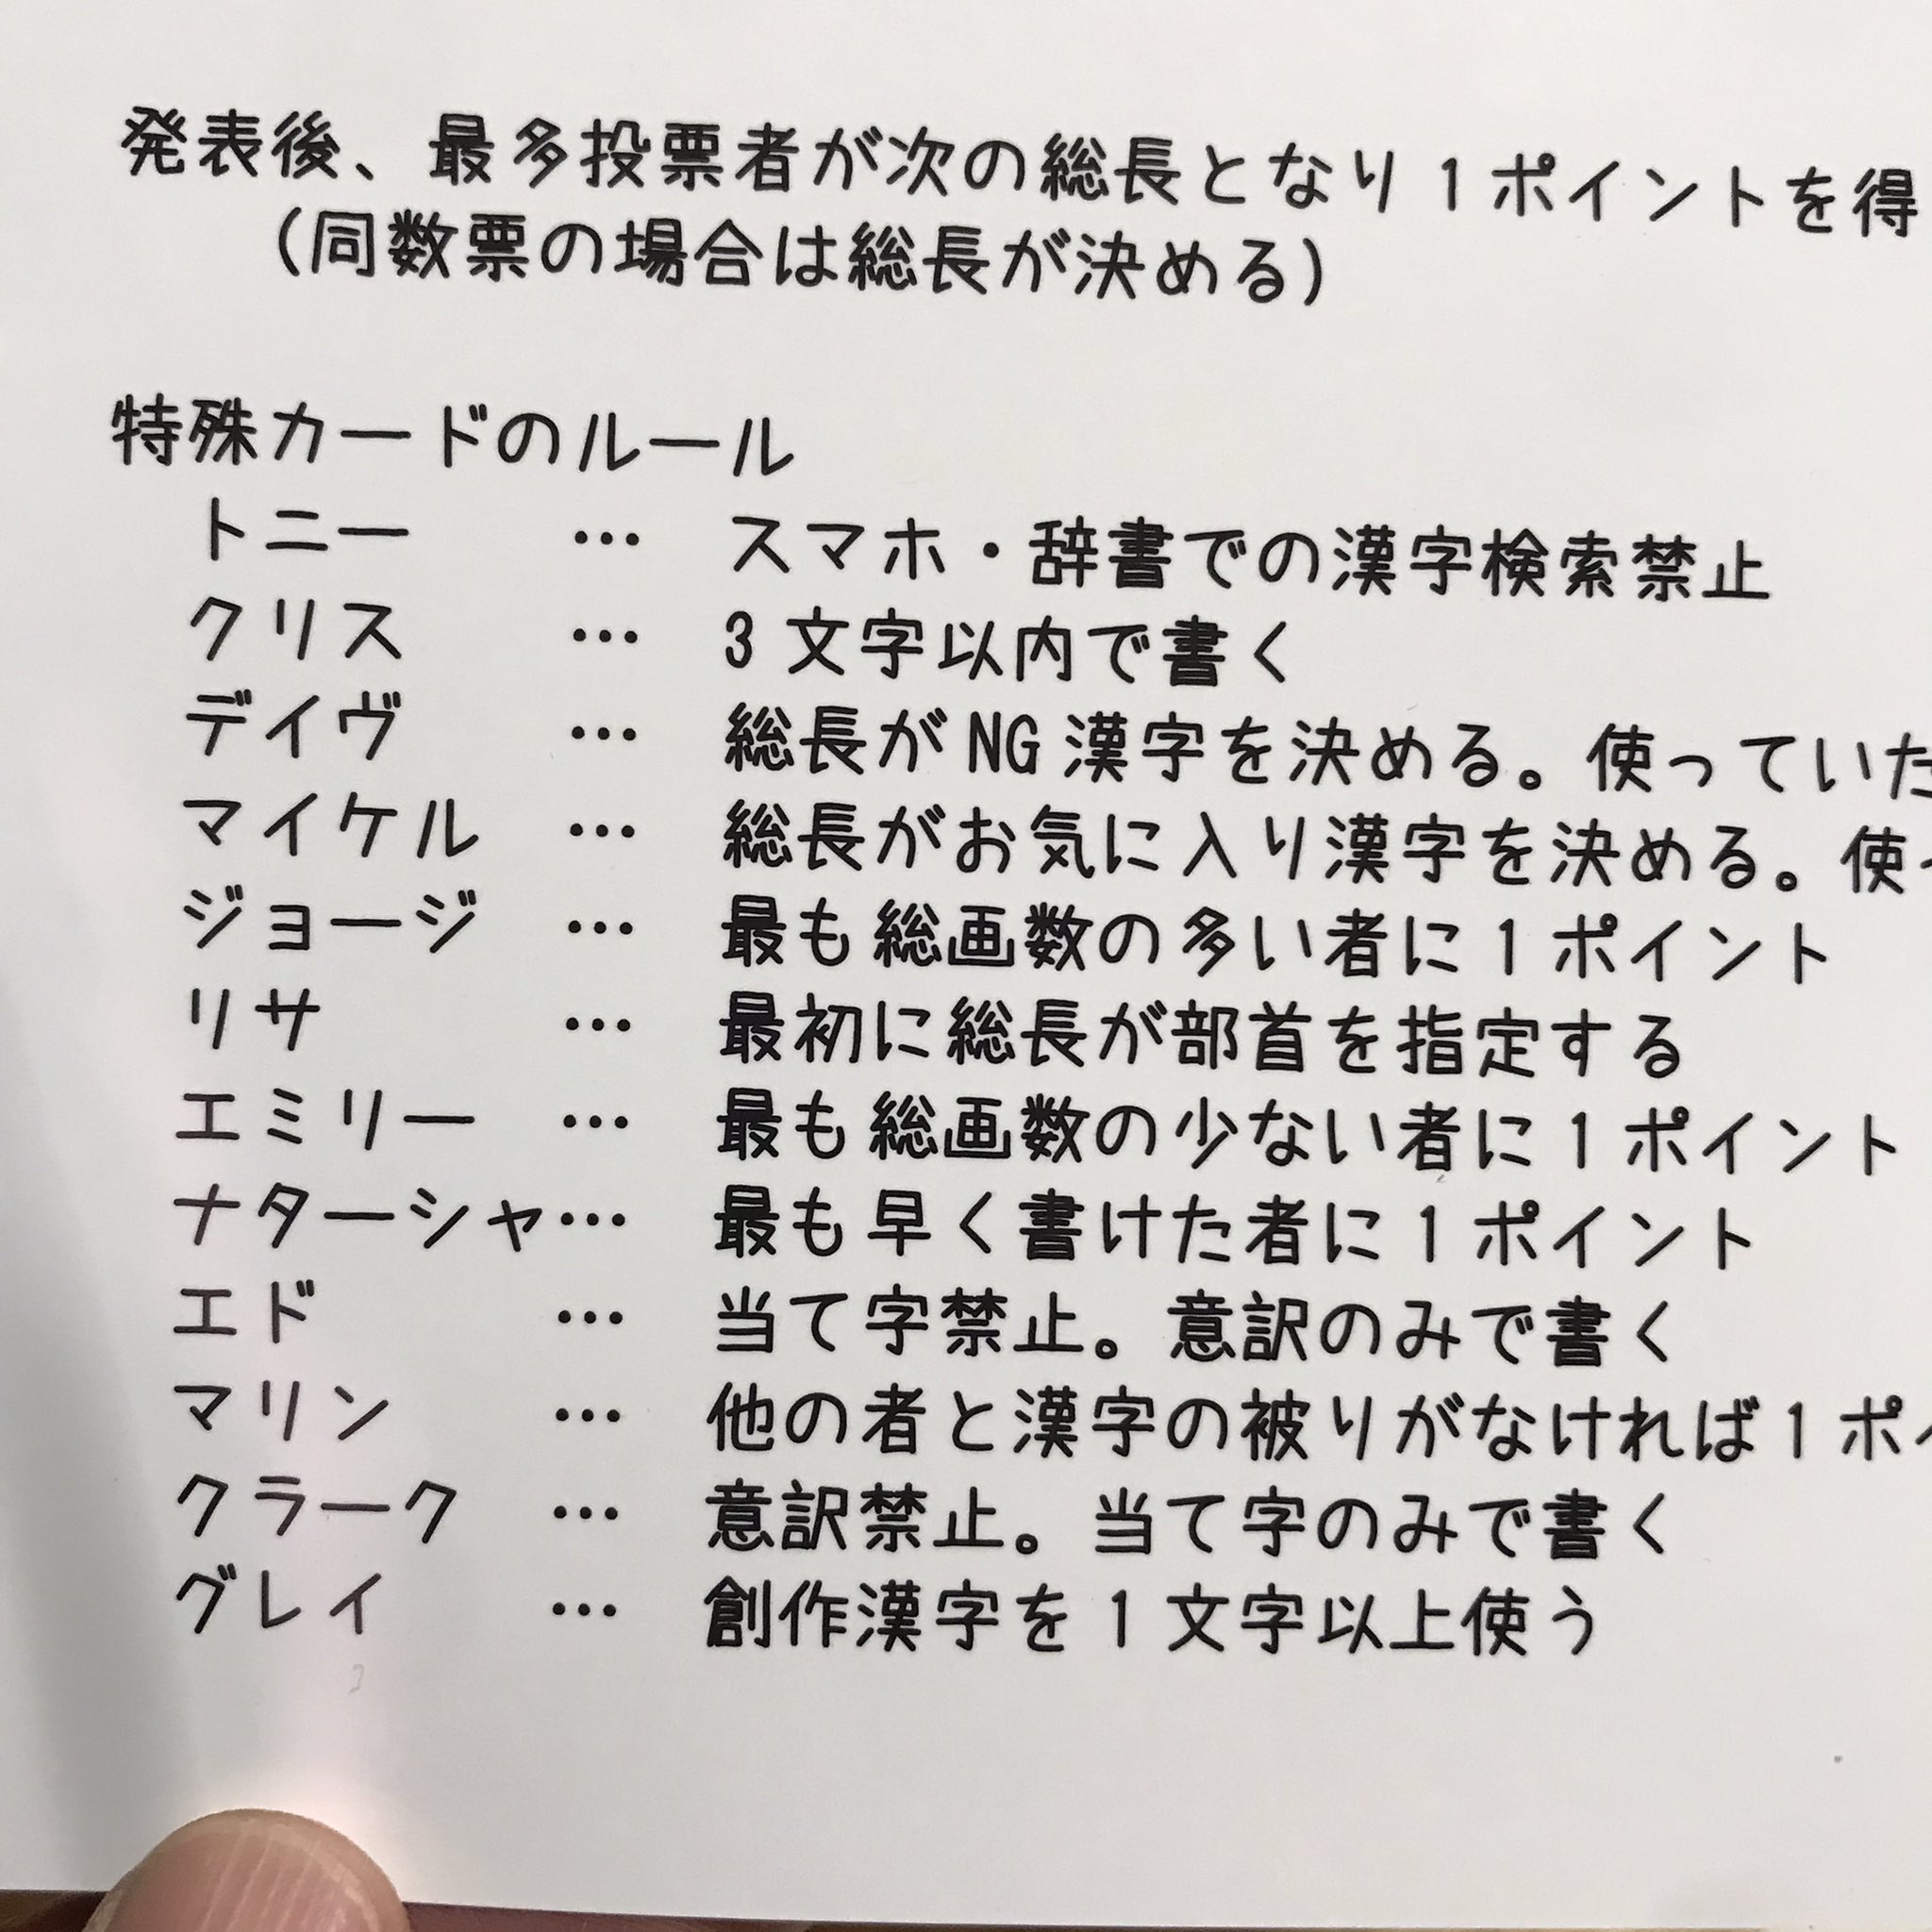 発表後、最多投票者が次の総長となり1ポイントを得
(同数票の場合は総長が決める)
特殊カードのルール
トニー … スマホ・辞書での漢字検索禁止
クリス … 3文字以内で書く
デイヴ … 総長がNG漢字を決める。使っていた
マイケル … 総長がお気に入り漢字を決める。使っ
ジョージ … 最も総画数の多い者に1ポイント
リサ … 最初に総長が部首を指定する
エミリー … 最も総画数の少ない者に1ポイント
ナターシャ… 最も早く書けた者に1ポイント
エド … 当て字禁止。意訳のみで書く
マリン … 他の者と漢字の被りがなければ1ポイ
クラーク … 意訳禁止。当て字のみで書く
グレイ … 創作漢字を1文字以上使う